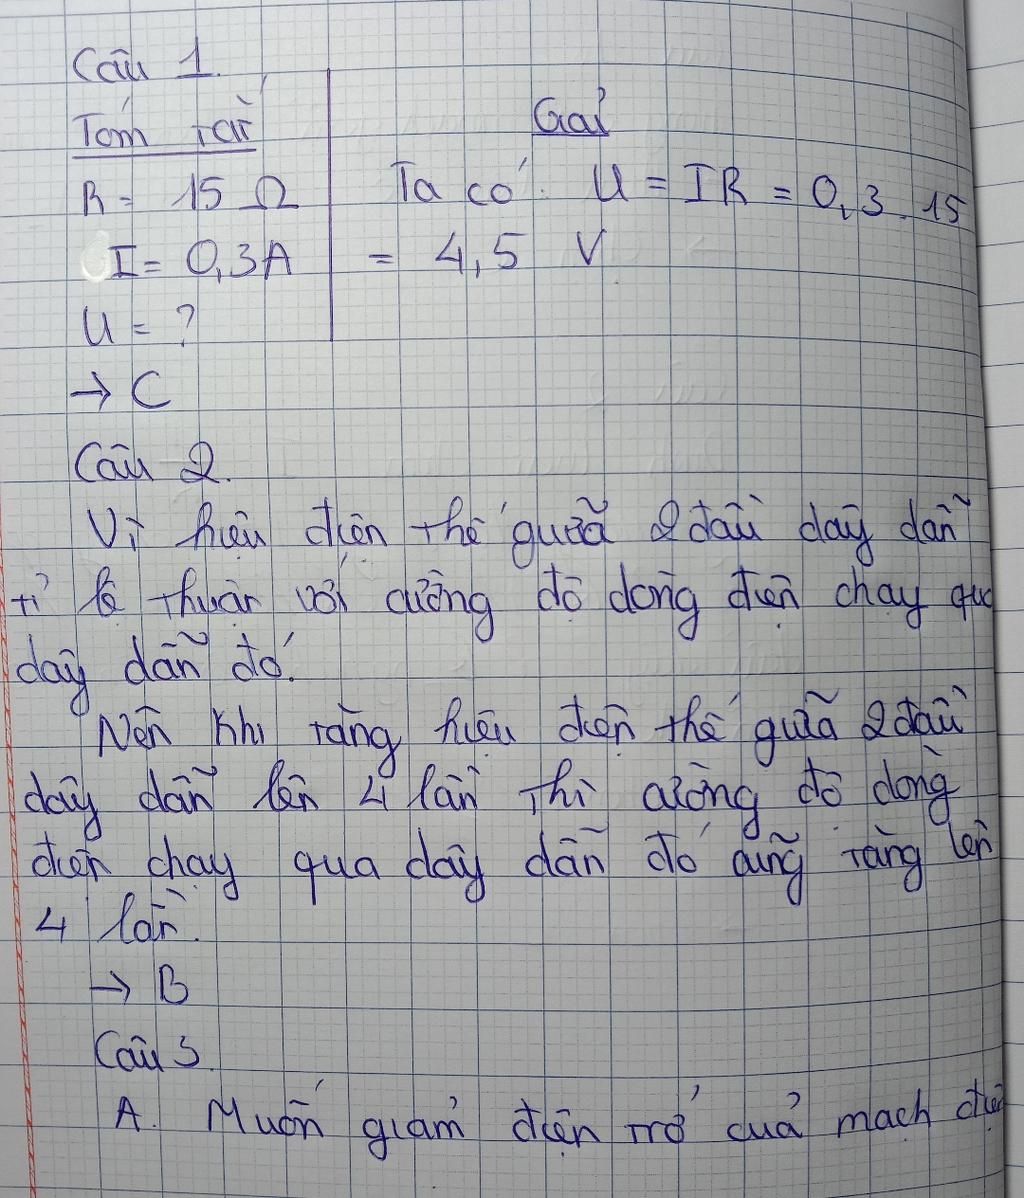 Câu 1.
Tóm tắt
Giải
R = 15 Ω
Ta có: U = IR = 0,3 . 15
I = 0,3A
= 4,5 V
U = ?
→ C
Câu 2.
Vì hiệu điện thế giữa 2 đầu dây dẫn
tỉ lệ thuận với cường độ dòng điện chạy qua
dây dẫn đó.
Nên khi tăng hiệu điện thế giữa 2 đầu
dây dẫn lên 4 lần thì cường độ dòng
điện chạy qua dây dẫn đó cũng tăng lên
4 lần.
→ B
Câu 3.
A. Muốn giảm điện trở của mạch điện